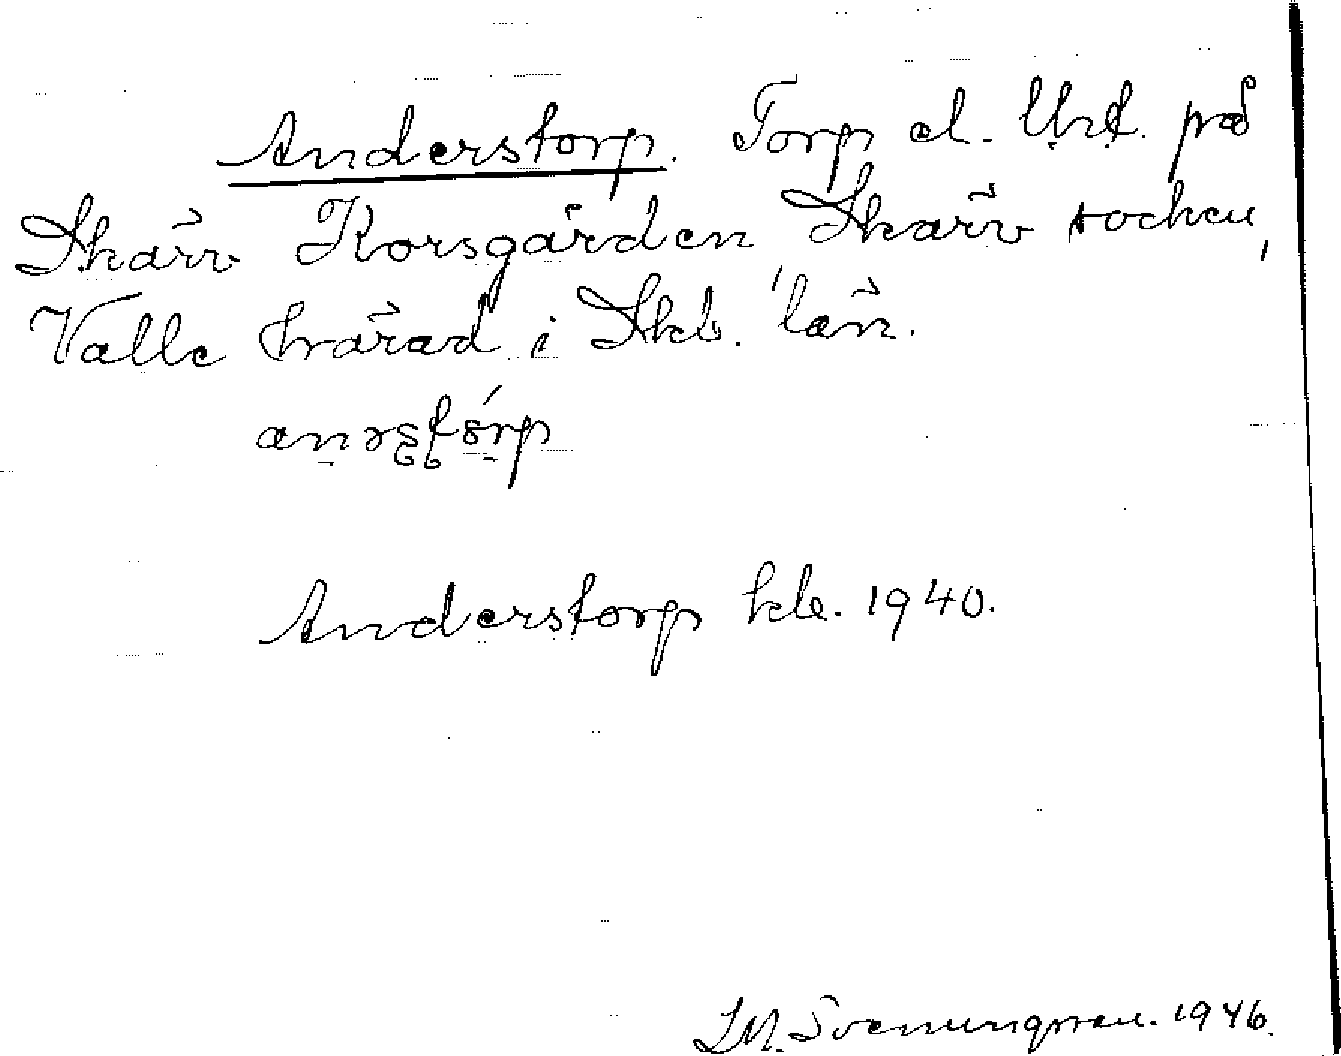 Anderstorp. Torp el. lht. på
Skärv Korsgården, Skärv socken,
Valle härad i Skb. län.
Anderstorp kbl. 1940.
Svenungsson. 1946.